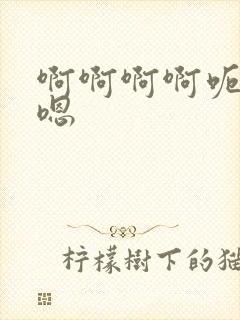 啊啊啊啊呃
嗯
柠檬樹下的猫